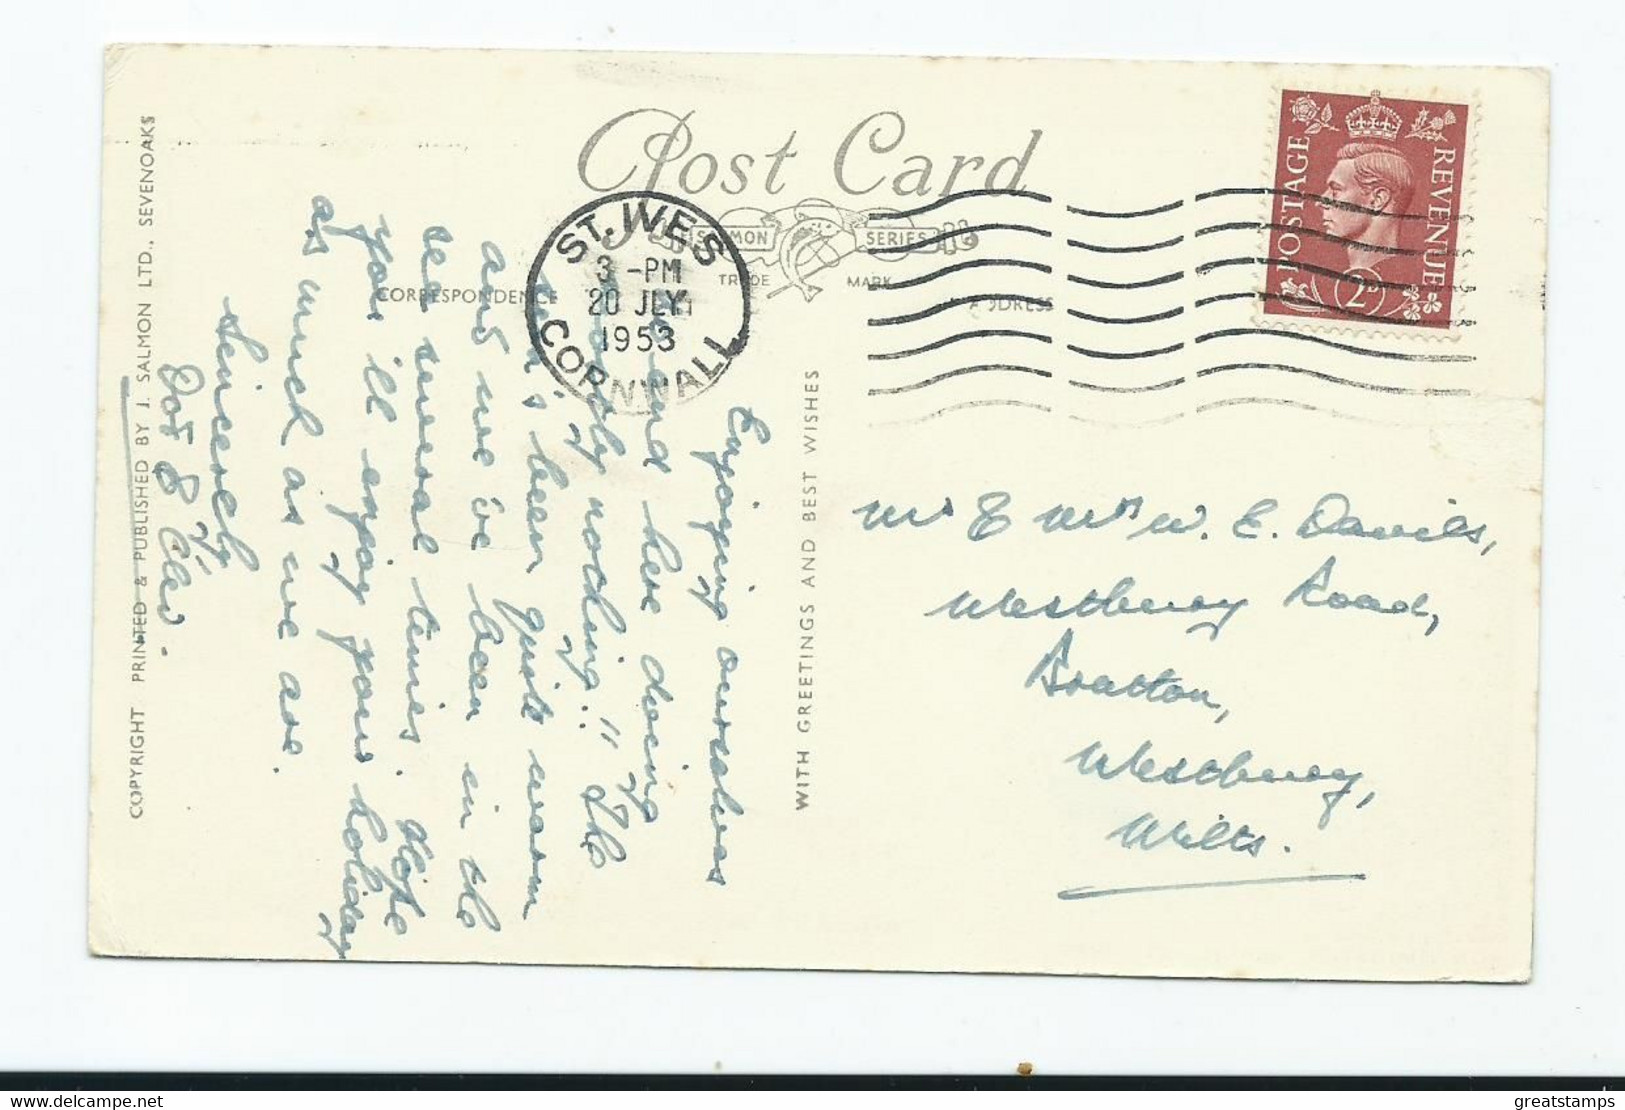 Post Card
SALMON SERIES
TRADE MARK
CORRESPONDENCE
ADDRESS
ST. IVES
3 - PM
20 JLY
1953
CORNWALL
POSTAGE REVENUE
2D
COPYRIGHT PRINTED & PUBLISHED BY J. SALMON LTD., SEVENOAKS
WITH GREETINGS AND BEST WISHES
Enjoying ourselves
and here doing
nothing!! The
been quite warm
and we've been in the
sea several times. Hope
you'll enjoy your holiday
as much as we are.
Sincerely
Dot &
Mr & Mrs W. E. Davies,
Westbury Road,
Bratton,
Westbury,
Wilts.
greatstamps